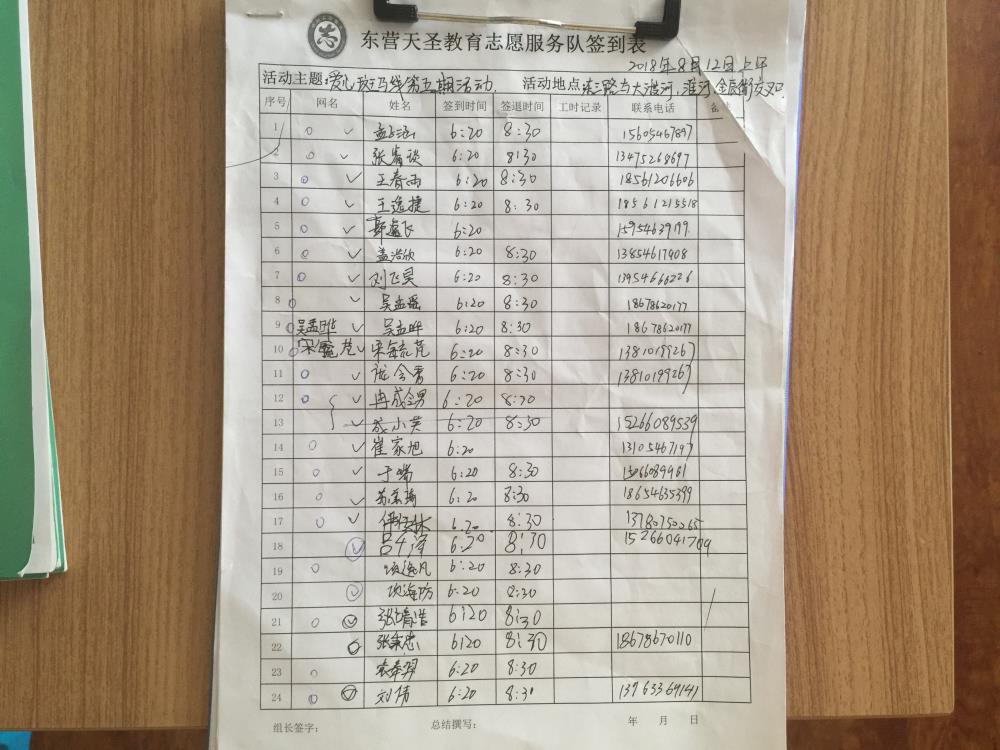 东营天圣教育志愿服务队签到表
2018年8月12日上午
活动主题:爱心斑马线第五期活动. 活动地点:东三路与大渡河,淮河,金辰街交叉口
序号 网名 姓名 签到时间 签退时间 工时记录 联系电话
1 6:20 8:30 15605467897
2 6:20 8:30 13475268697
3 王春雨 6:20 8:30 18561206606
4 王逸捷 6:20 8:30 18561215518
5 6:20 15954639779
6 孟浩欣 6:20 8:30 13854617908
7 刘飞昊 6:20 8:30 13954666226
8 吴孟瑶 6:20 8:30 18678620177
9 吴孟晔 吴孟晔 6:20 8:30 18678620177
10 宋毓芃 宋毓芃 6:20 8:30 13810199267
11 6:20 8:30 13810199267
12 冉成男 6:20 8:30
13 成小英 6:20 8:30 15266089539
14 崔家旭 6:20 13105467197
15 于喘 6:20 8:30 15066089981
16 6:20 8:30 18654635399
17 6:20 8:30 13780750265
18 吕千泽 6:20 8:30 15266041709
19 项逸凡 6:20 8:30
20 项海防 6:20 8:30
21 张靖浩 6:20 8:30
22 6:20 8:30 18678670110
23 6:20 8:30
24 刘伟 6:20 8:31 13963369141
组长签字: 总结撰写: 年 月 日